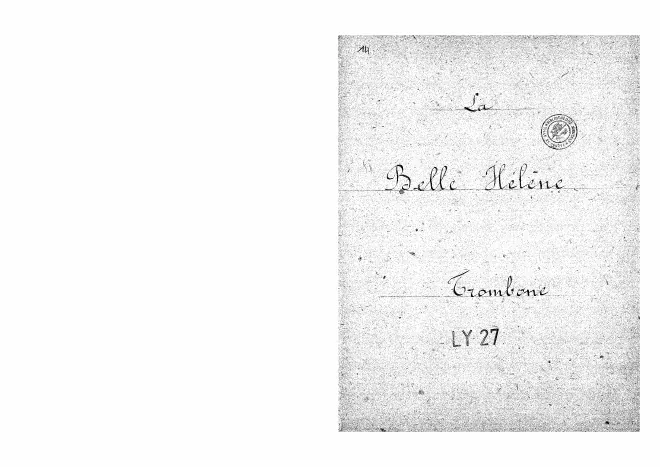 14
La
Belle Hélène
Trombone
LY 27